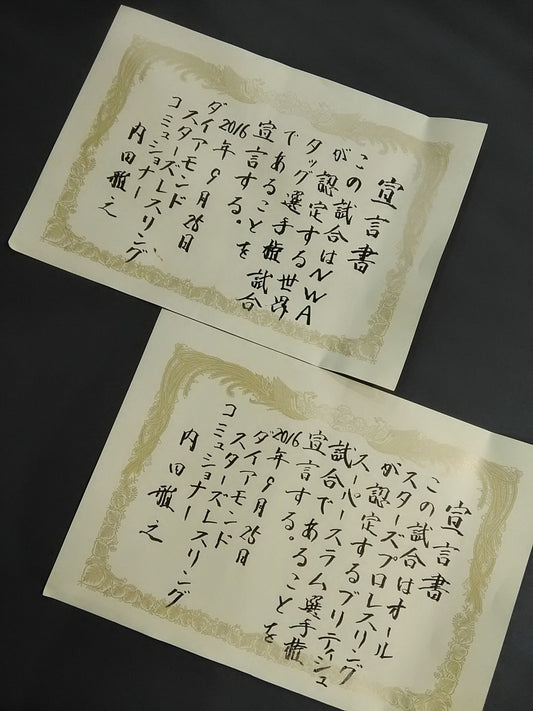 宣言書
この試合はNWA
が認定する世界
タッグ選手権試合
であることを
宣言する。
2016年9月25日
ダイアモンド
スターズレスリング
コミュショナー
内田雅之
宣言書
この試合はオール
スターズプロレスリング
が認定するブリティシュ
スーパースラム選手権
試合であることを
宣言する。
2016年9月25日
ダイアモンド
スターズレスリング
コミショナー
内田雅之